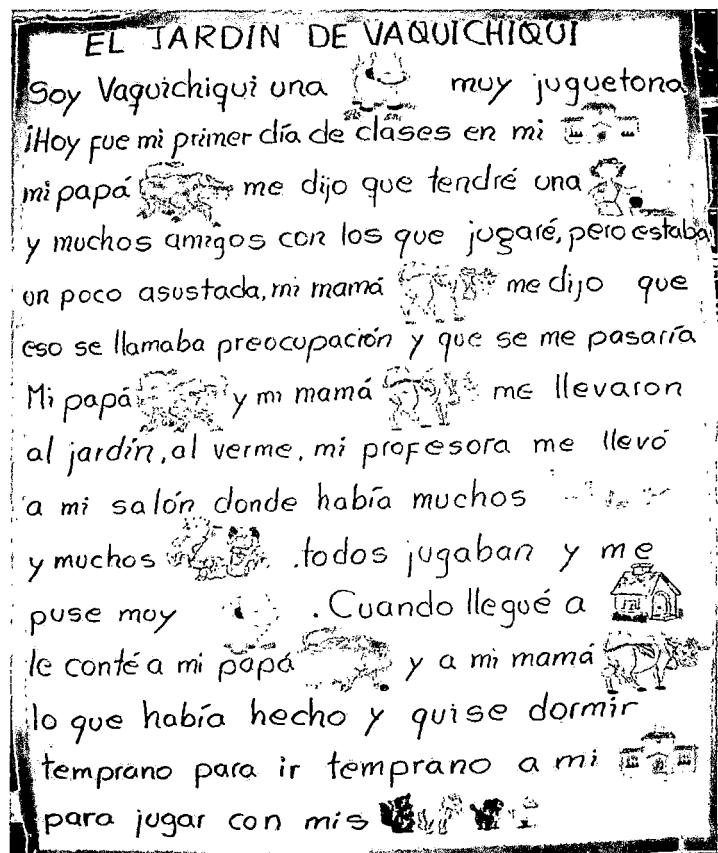 EL JARDIN DE VAQUICHIQUI
Soy Vaquichiqui una muy juguetona
¡Hoy fue mi primer día de clases en mi
mi papá me dijo que tendré una
y muchos amigos con los que jugaré, pero estaba
un poco asustada, mi mamá me dijo que
eso se llamaba preocupación y que se me pasaría
Mi papá y mi mamá me llevaron
al jardín, al verme, mi profesora me llevó
a mi salón donde había muchos
y muchos .todos jugaban y me
puse muy . Cuando llegué a
le conté a mi papá y a mi mamá
lo que había hecho y quise dormir
temprano para ir temprano a mi
para jugar con mis